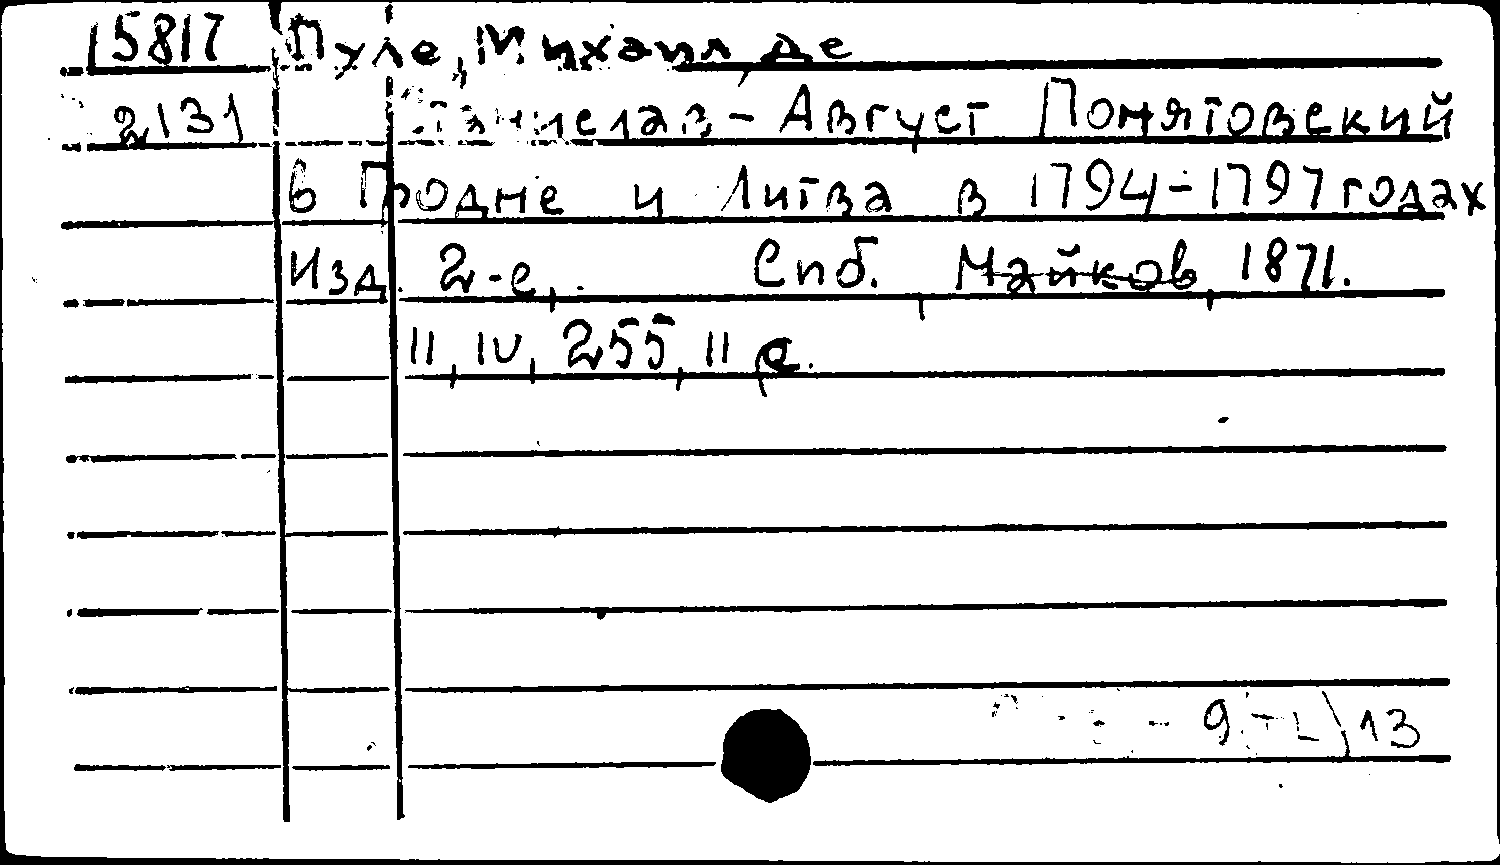 15817 Пуле, Михаил, де
2131 Станислав-Август Понятовский
в Гродне и Литва в 1794-1797 годах
Изд. 2-е,. Спб., Майков, 1871.
II, IV, 255, II с.
13